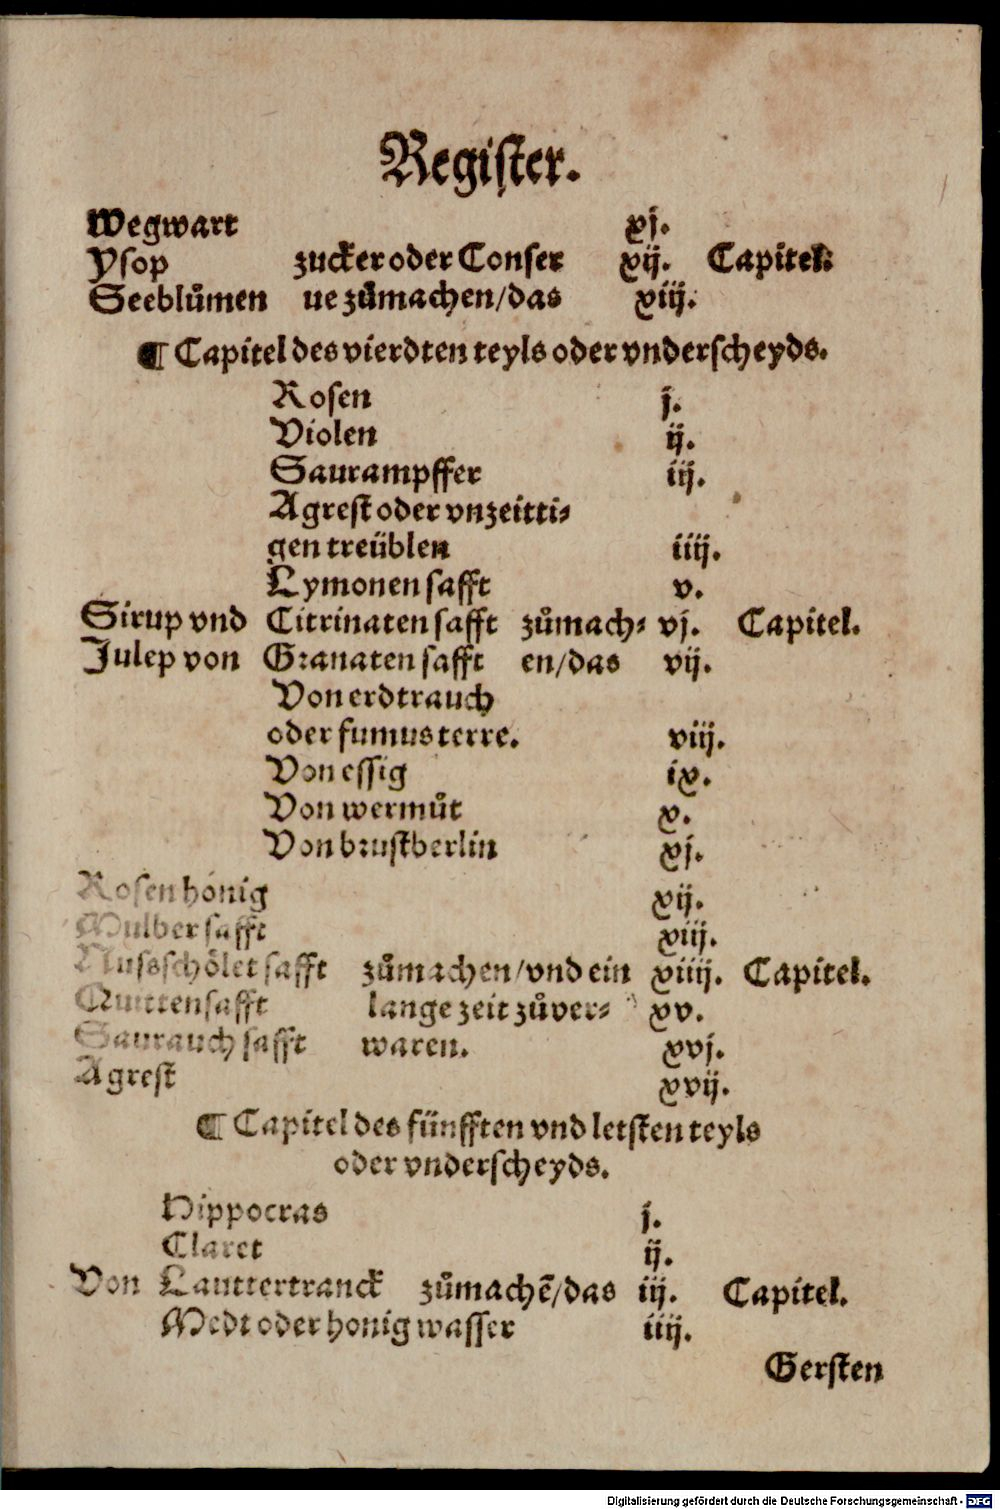 Register.
Wegwart xj.
Ysop zucker oder Conser xij. Capitel.
Seeblůmen ue zůmachen/das xiij.
¶ Capitel des vierdten teyls oder vnderscheyds.
Rosen j.
Violen ij.
Saurampffer iij.
Agrest oder vnzeitti⸗
gen treüblen iiij.
Lymonen safft v.
Sirup vnd Citrinaten safft zůmach⸗ vj. Capitel.
Julep von Granaten safft en/das vij.
Von erdtrauch
oder fumus terre. viij.
Von essig ix.
Von wermůt x.
Von brustberlin xj.
Rosen hönig xij.
Mulber safft xiij.
Nussschölet safft zůmachen/vnd ein xiiij. Capitel.
Quittensafft lange zeit zůver⸗ xv.
Saurauch safft waren. xvj.
Agrest xvij.
¶ Capitel des fünfften vnd letsten teyls
oder vnderscheyds.
Hippocras j.
Claret ij.
Von Lauttertranck zůmachē/das iij. Capitel.
Medt oder honig wasser iiij.
Gersten
Digitalisierung gefördert durch die Deutsche Forschungsgemeinschaft - DFG